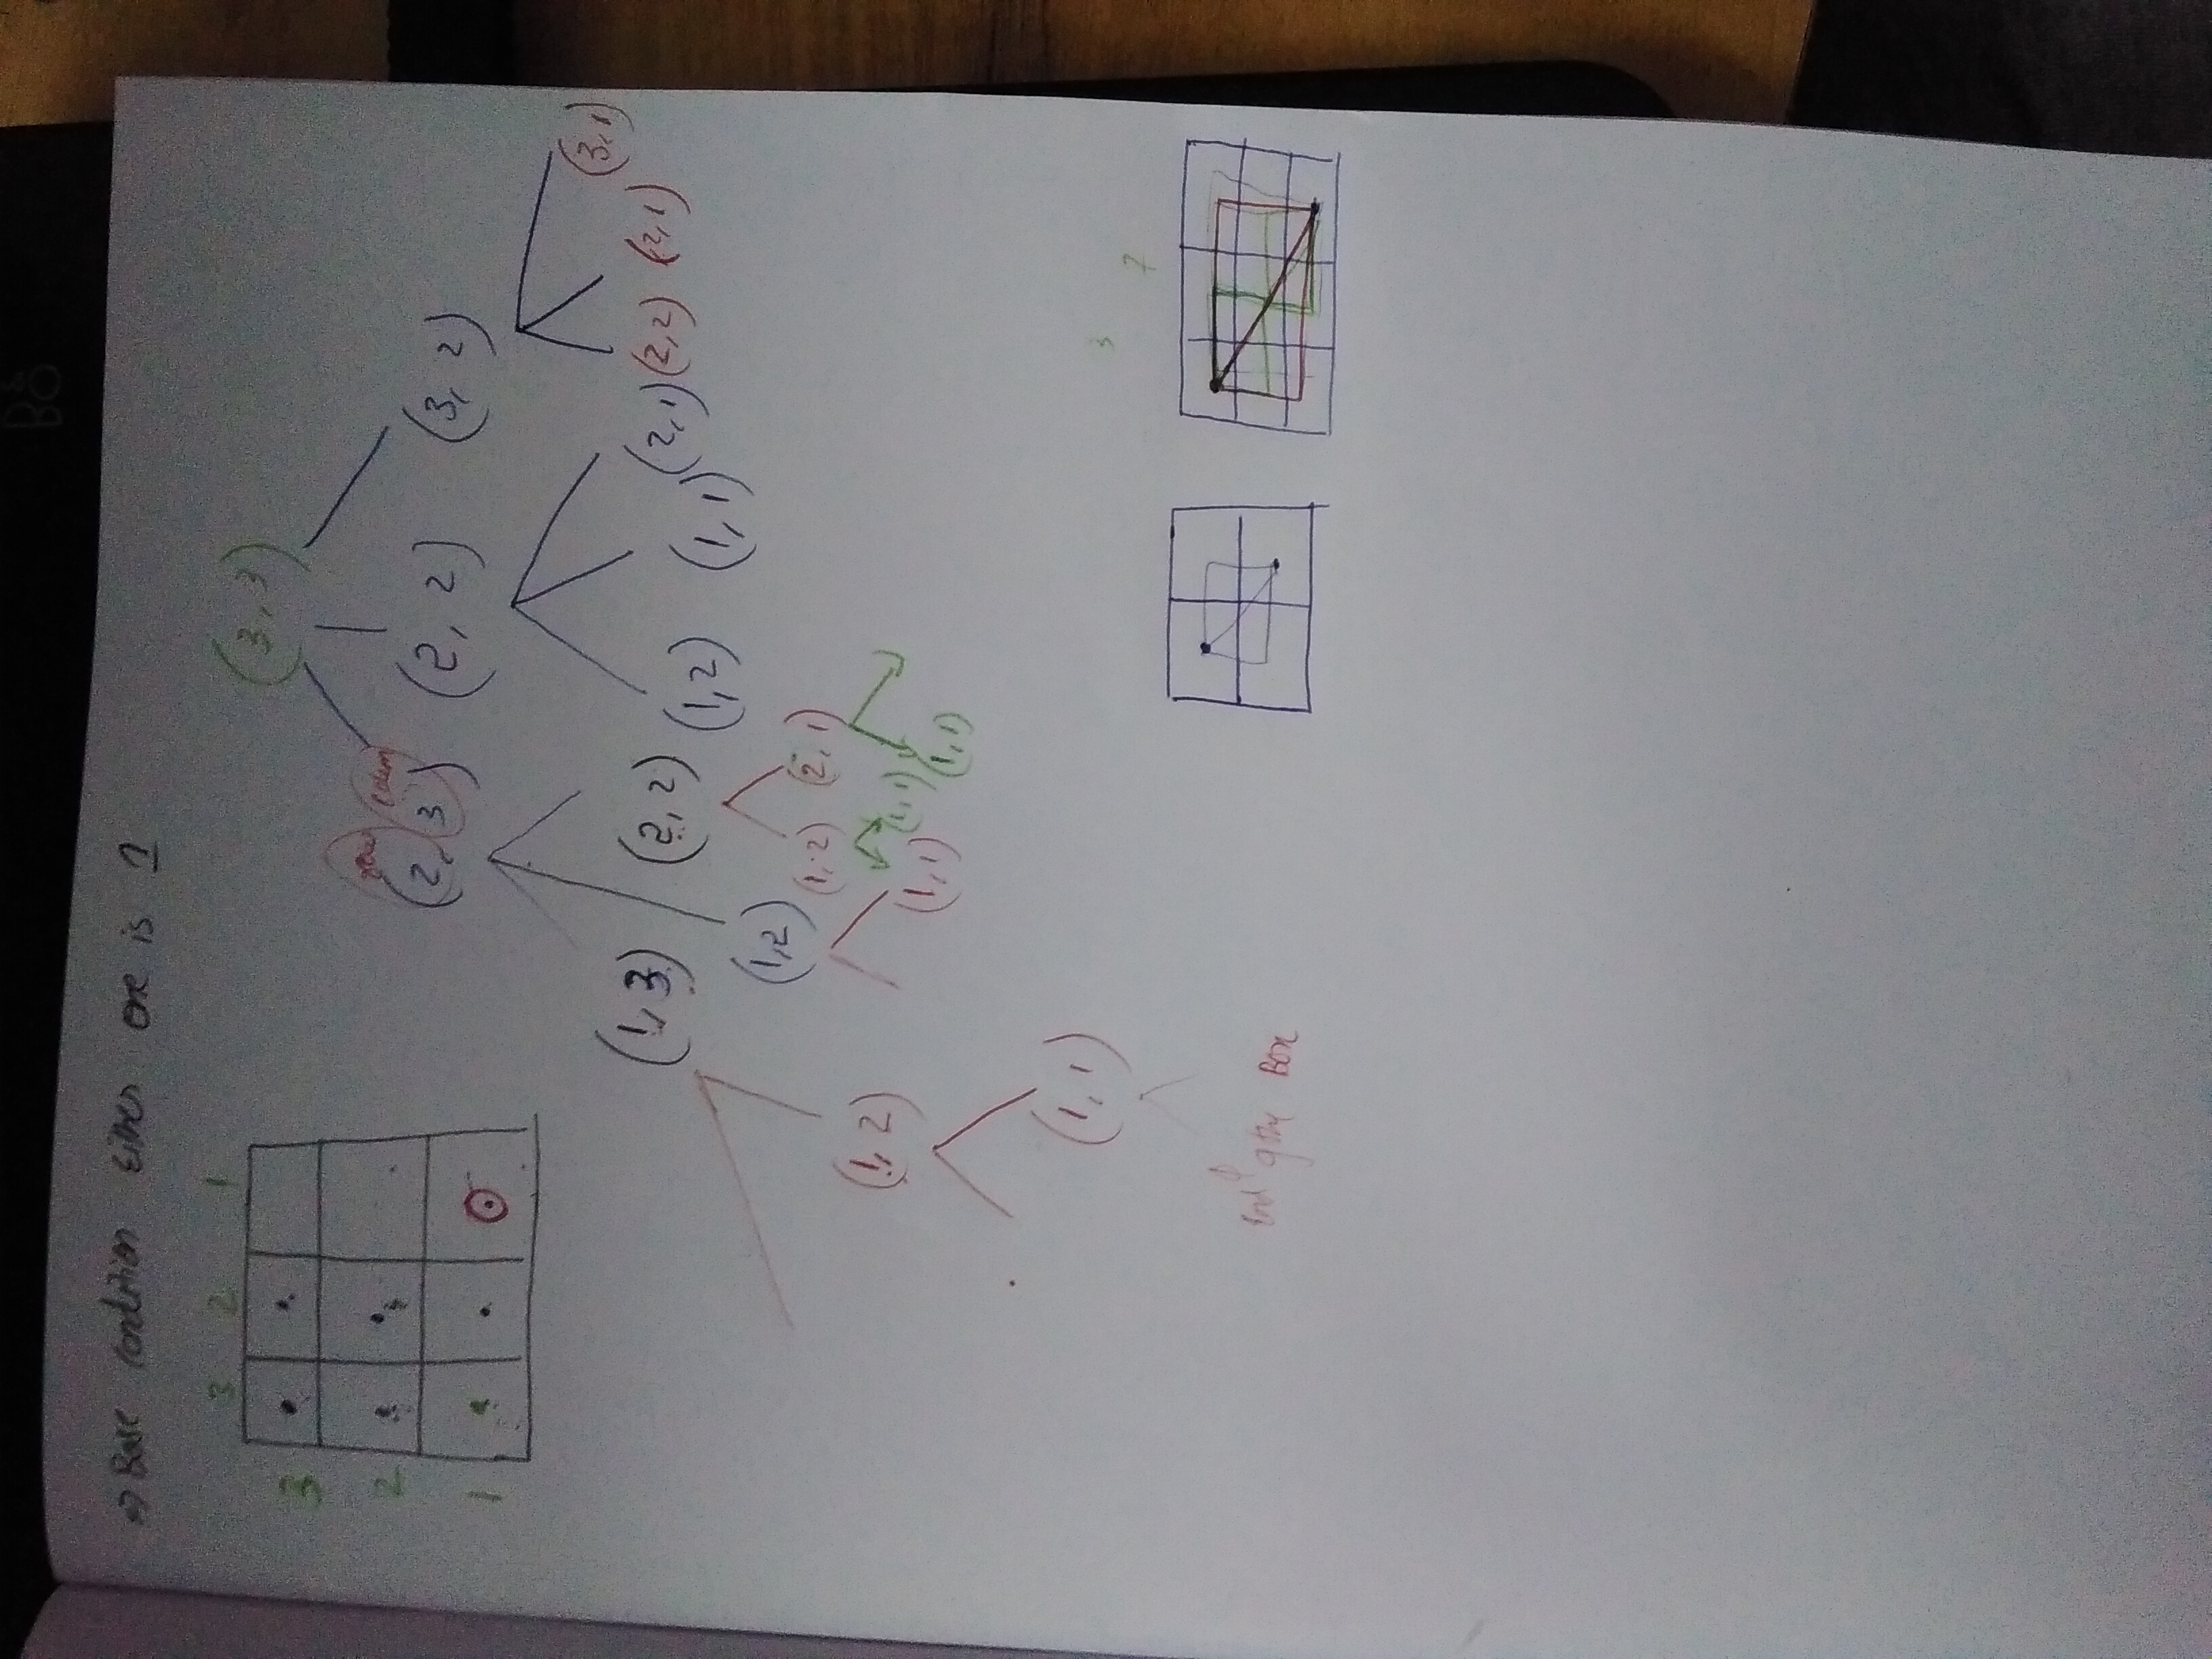 B&O
⇒ Base condition either one is 1
3 2 1
3
2
1
(3,3)
row colum
(2,3) (2,2) (3,2)
(3,1)
(1,3) (2,2) (1,2) (1,1) (2,1) (2,2) (2,1)
(1,2) (1,2) (2,1)
(1,2) (1,1) (1,1) (1,1)
(1,1)
3
7
End of the Box